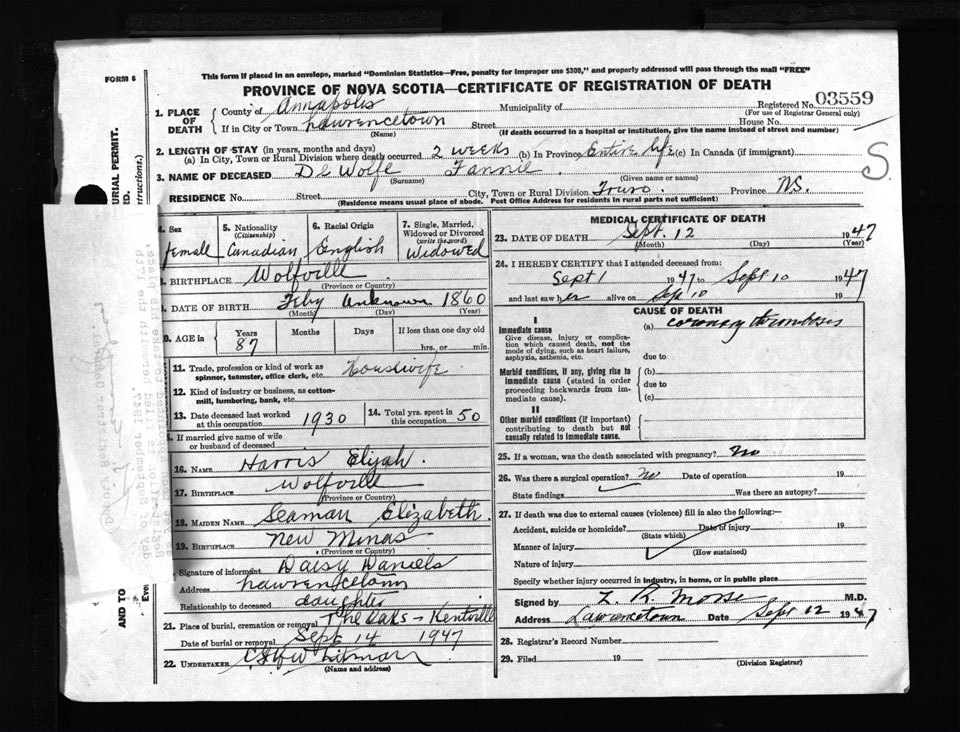 FORM 6
This form if placed in an envelope, marked "Dominion Statistics—Free, penalty for improper use $300," and properly addressed will pass through the mail "FREE"
PROVINCE OF NOVA SCOTIA—CERTIFICATE OF REGISTRATION OF DEATH
1. PLACE OF DEATH
County of Annapolis Municipality of Registered No. 03559
(For use of Registrar General only)
If in City or Town Lawrencetown Street House No.
(Name) (If death occurred in a hospital or institution, give the name instead of street and number)
2. LENGTH OF STAY (in years, months and days)
(a) In City, Town or Rural Division where death occurred 2 weeks (b) In Province Entire life (c) In Canada (if immigrant)
S
3. NAME OF DECEASED De Wolfe Fannie
(Surname) (Given name or names)
RESIDENCE No. Street City, Town or Rural Division Truro. Province N.S.
(Residence means usual place of abode. Post Office Address for residents in rural parts not sufficient)
4. Sex
Female
5. Nationality
(Citizenship)
Canadian
6. Racial Origin
English
7. Single, Married, Widowed or Divorced
(write the word)
Widowed
BIRTHPLACE Wolfville
(Province or Country)
DATE OF BIRTH Feby Unknown 1860
(Month) (Day) (Year)
AGE in
Years Months Days If less than one day old
87 hrs. or min.
11. Trade, profession or kind of work as
spinner, teamster, office clerk, etc. Housewife
12. Kind of industry or business, as cotton-
mill, lumbering, bank, etc.
13. Date deceased last worked
at this occupation 1930
14. Total yrs. spent in
this occupation 50
If married give name of wife
or husband of deceased
16. NAME Harris Elijah.
17. BIRTHPLACE Wolfville
(Province or Country)
18. MAIDEN NAME Seaman Elizabeth.
19. BIRTHPLACE New Minas
(Province or Country)
Signature of informant Daisy Daniels
Address Lawrencetown
Relationship to deceased daughter
21. Place of burial, cremation or removal The Oaks - Kentville
Date of burial or removal Sept 14 1947
22. UNDERTAKER
(Name and address)
MEDICAL CERTIFICATE OF DEATH
23. DATE OF DEATH Sept. 12 1947
(Month) (Day) (Year)
24. I HEREBY CERTIFY that I attended deceased from:
Sept 1 1947 to Sept 10 1947
and last saw her alive on Sept 10 1947
CAUSE OF DEATH
I
Immediate cause
Give disease, injury or complication which caused death, not the mode of dying, such as heart failure, asphyxia, asthenia, etc.
(a) coronary thrombosis
due to
Morbid conditions, if any, giving rise to immediate cause (stated in order proceeding backwards from immediate cause).
(b)
due to
(c)
II
Other morbid conditions (if important) contributing to death but not causally related to immediate cause.
25. If a woman, was the death associated with pregnancy? No
26. Was there a surgical operation? No Date of operation 19
State findings Was there an autopsy?
27. If death was due to external causes (violence) fill in also the following:—
Accident, suicide or homicide? Date of injury 19
(State which)
Manner of injury
(How sustained)
Nature of injury
Specify whether injury occurred in industry, in home, or in public place
Signed by L. R. Morse M.D.
Address Lawrencetown Date Sept 12 1947
28. Registrar's Record Number
29. Filed 19
(Division Registrar)
URIAL PERMIT.
AND TO